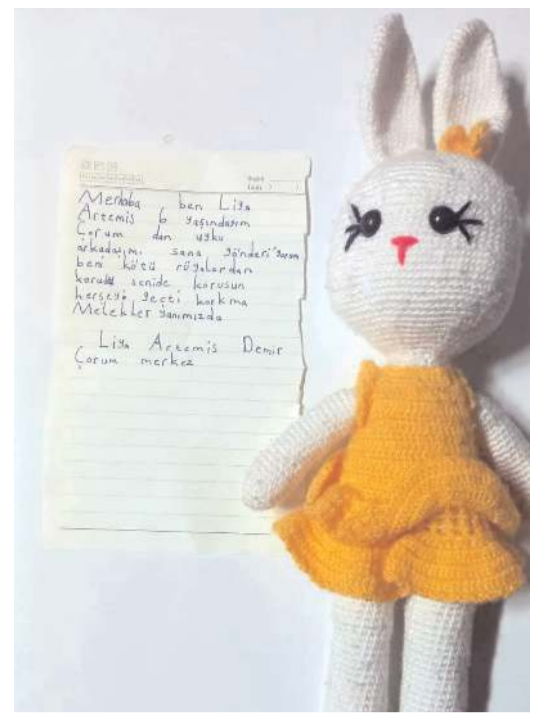 Merhaba ben Liya
Artemis 6 yaşındayım
Çorum dan uyku
arkadaşımı sana gönderiyorum
beni kötü rüyalardan
korudu senide korusun
herşey geçti korkma
Melekler yanımızda
Liya Artemis Demir
Çorum merkez